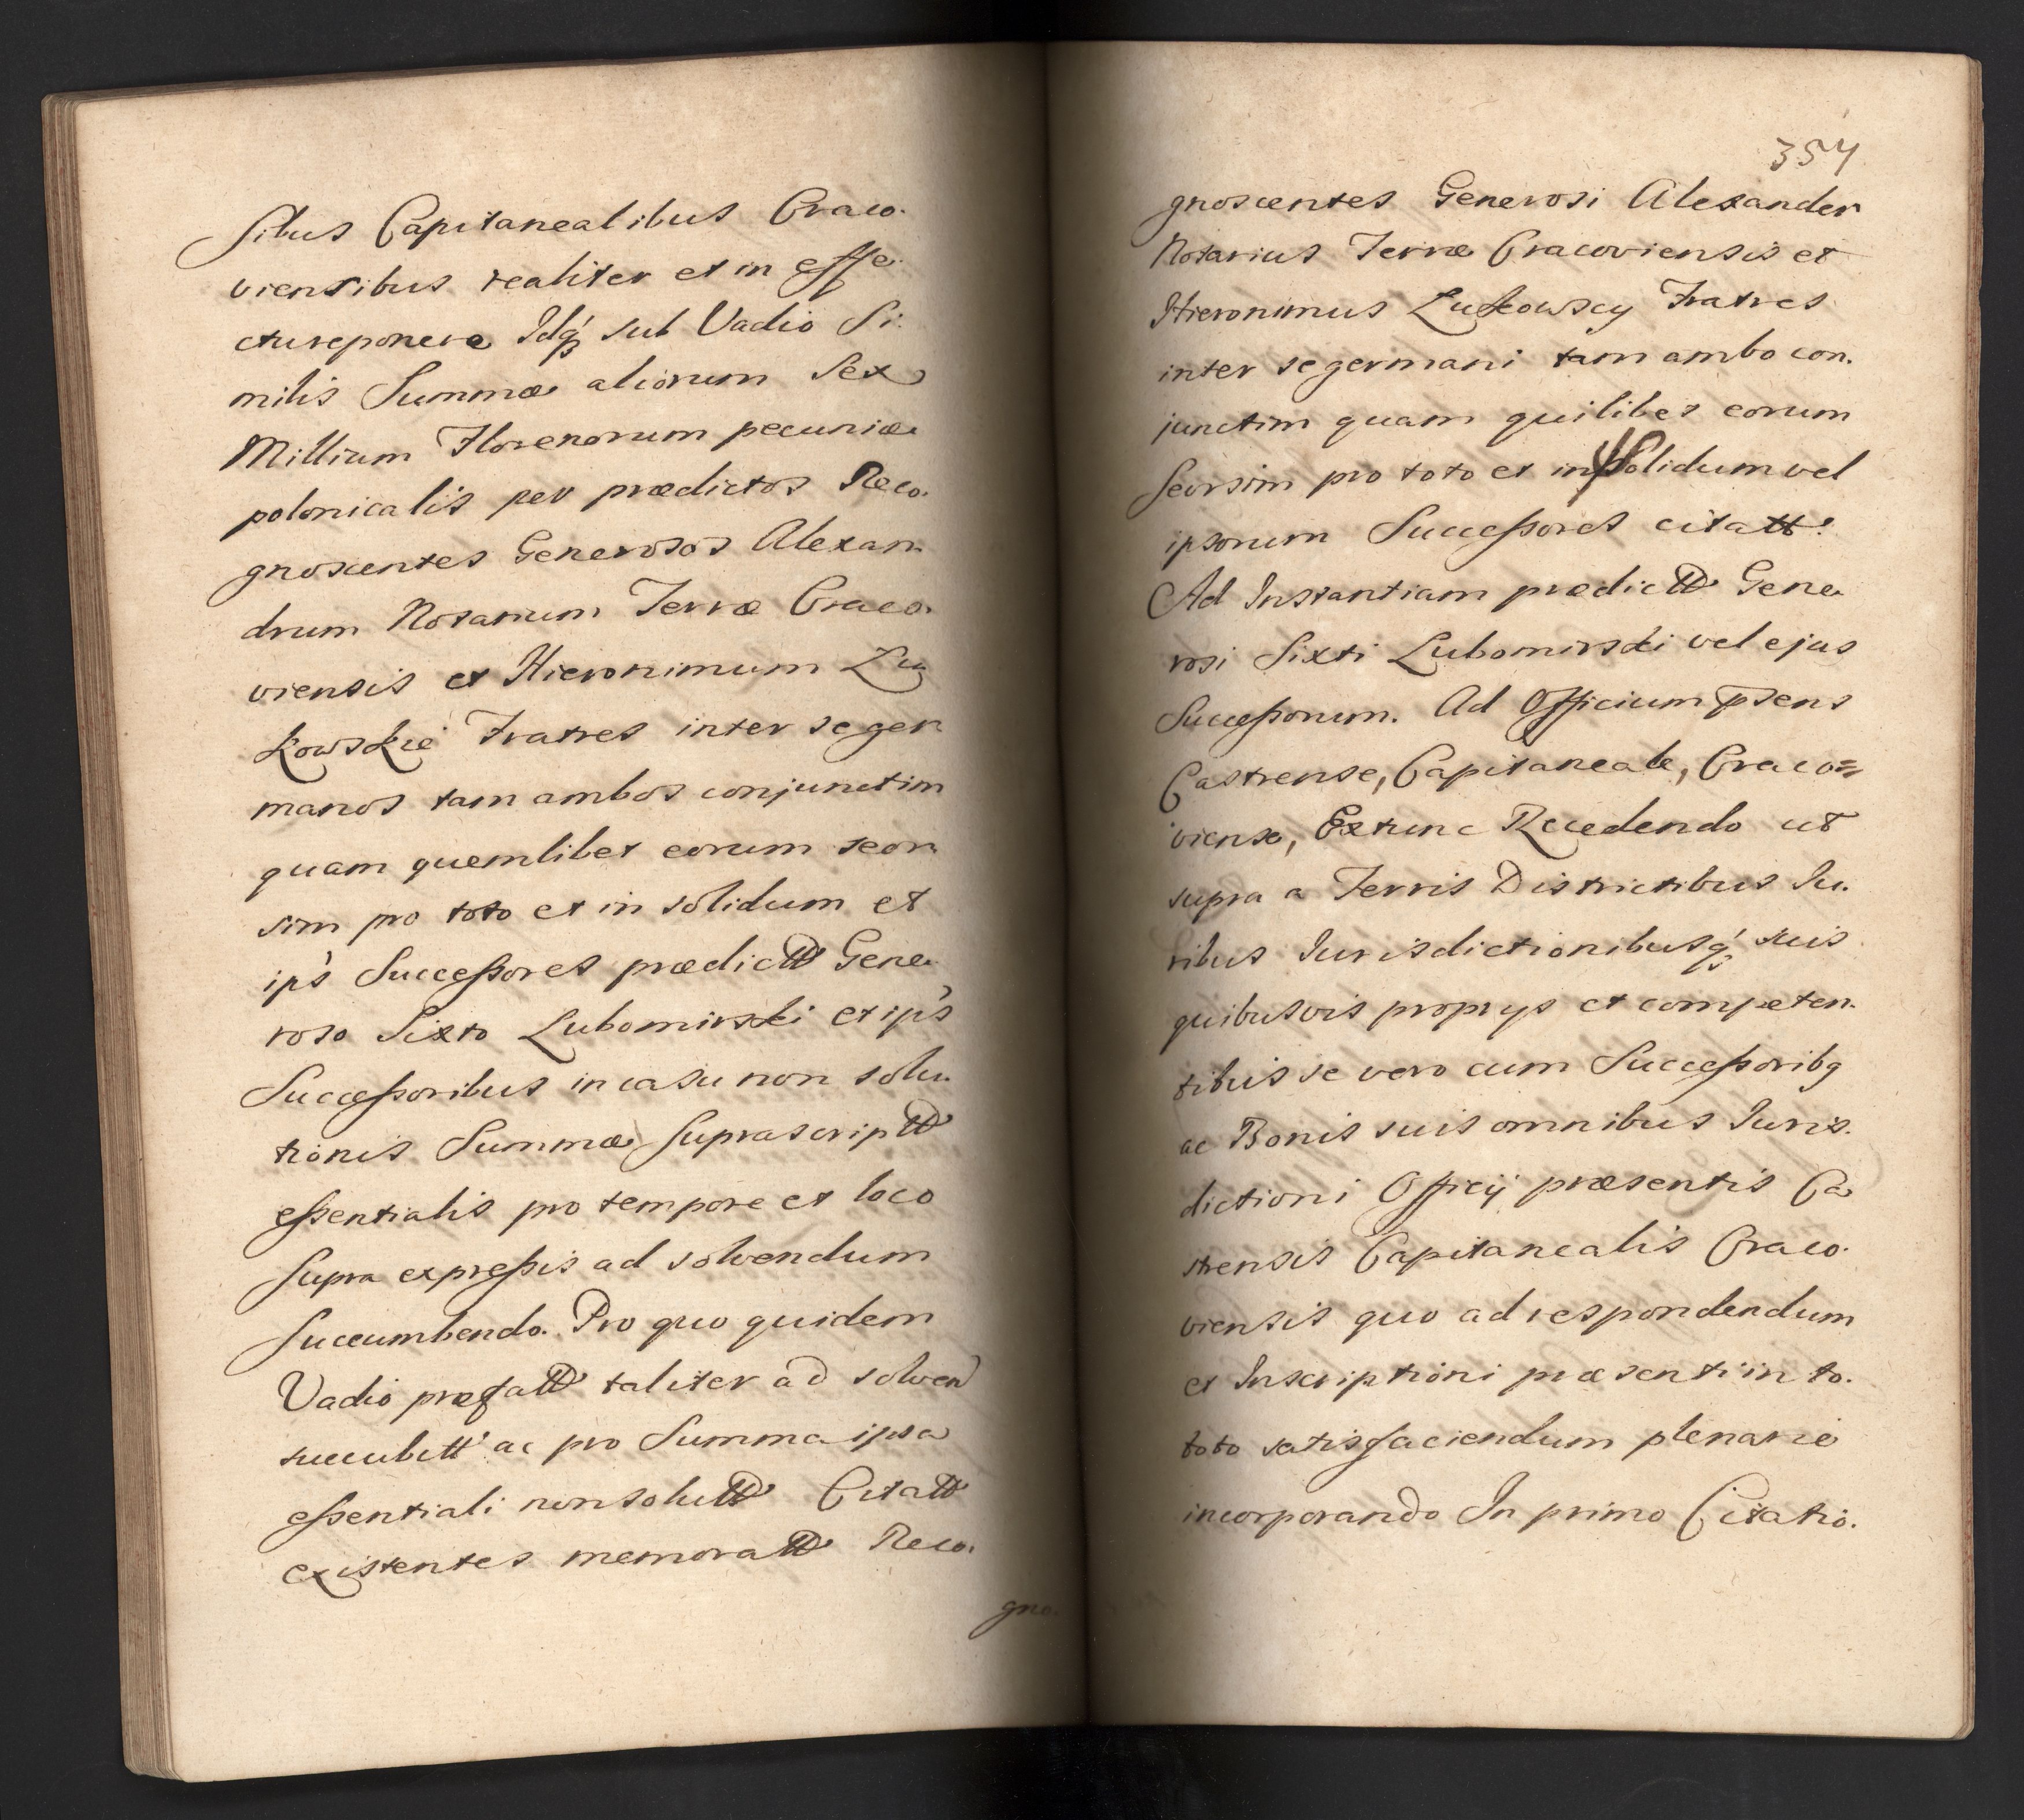 sibus Capitanealibus Craco.
viensibus realiter et in effe.
ctu reponere Idq́ sub Vadio Si.
milis Summæ aliorum Sex
Millium Florenorum pecuniæ
polonicalis per prædictos Reco.
gnoscentes Generosos Alexan
drum Notarium Terræ Craco.
viensis et Hieronimum Lu
kowskie Fratres inter se ger
manos tam ambos conjunctim
quam quemlibet eorum seor
sim pro toto et in solidum et
ip's Successores prædictt Gene.
roso Sixto Lubomirski et ip's
Successoribus in casu non solu.
tionis Summæ suprascriptt
essentialis pro tempore et loco
supra expressis ad solvendum
succumbendo. Pro quo quidem
Vadio præfatt taliter ad solven
succubitt ac pro Summa ipsa
essentiali non solutt Citatt
existentes memoratt Reco.
gno.
354
gnoscentes Generosi Alexander
Notarius Terræ Cracoviensis et
Hieronimus Lukowscy Fratres
inter se germani tam ambo con.
junctim quam quilibet eorum
seorsim pro toto et in Solidum vel
ipsorum Successores citatt.
Ad Instantiam prædictt Gene.
rosi Sixti Lubomirski vel ejus
Successorum. Ad Officium psens
Castrense, Capitaneale, Craco=
viense, Extunc Recedendo ut
supra a Terris Districtibus Iu.
ribus Iurisdictionibusq́ suis
quibusvis proprys et competen.
tibus se vero cum Successoribq
ac Bonis suis omnibus Iuris.
dictioni Officij præsentis Ca
strensis Capitanealis Craco.
viensis quo ad respondendum
et Inscriptioni præsenti in to.
toto satisfaciendum plenarie
incorporando In primo Citatio.